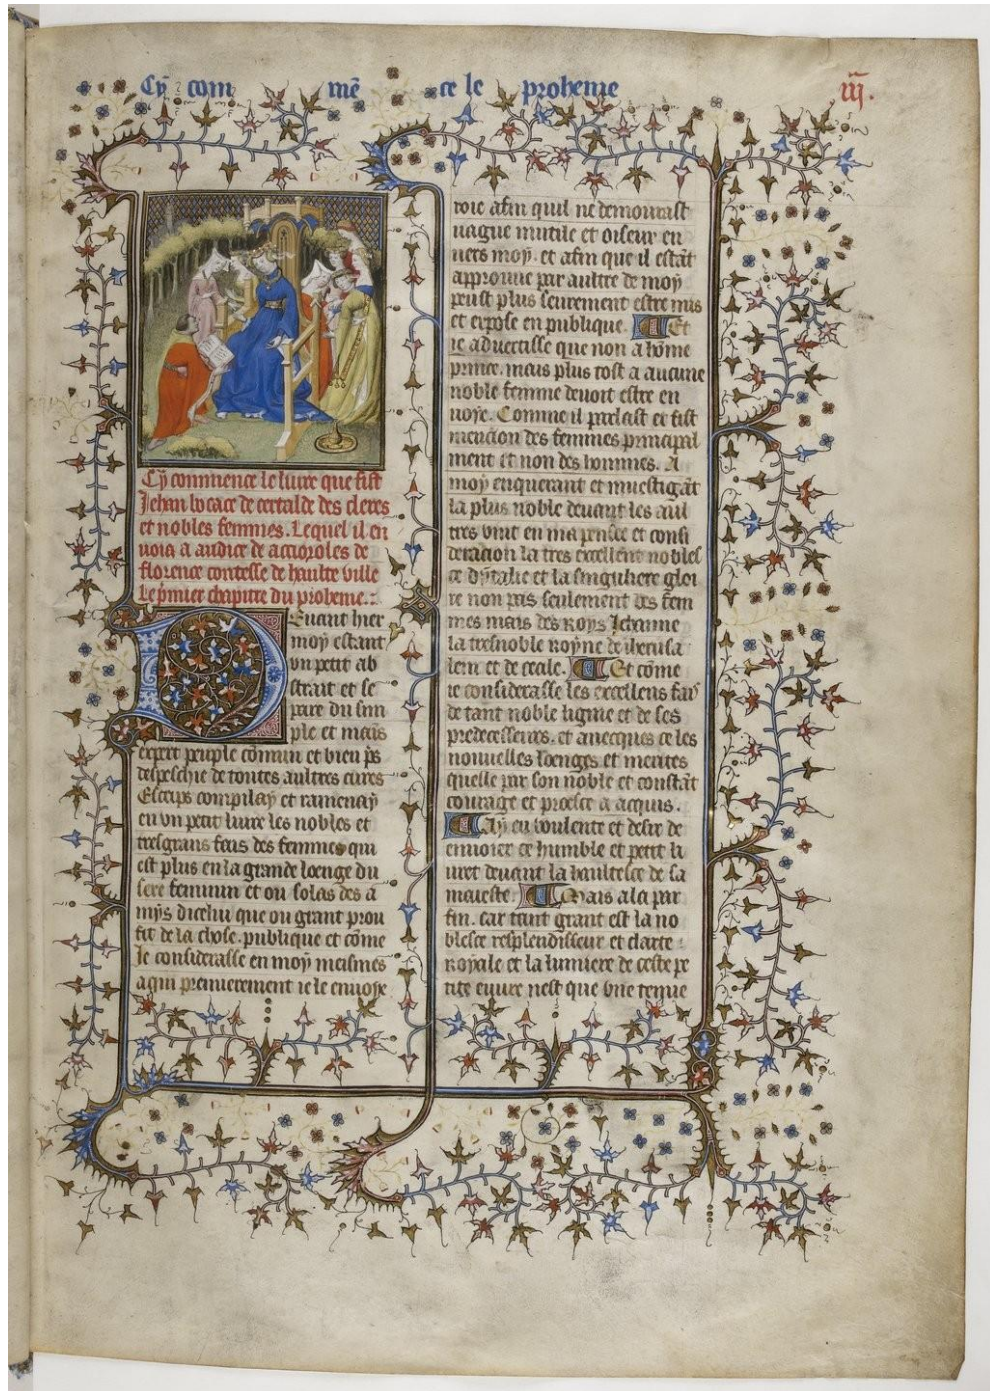 Cy com mē ce le proheme iij.
Cy commence le livre que fist
Jehan bocace de certalde des cleres
et nobles femmes. Lequel il en
voia a audice de accioroles de
florence contesse de haulte ville
Le pmier chapitre du proheme.
Devant hier
moy estant
un petit ab
strait et se
pare du sim
ple et mains
expert peuple cōmun et bien ps
despeschie de toutes aultres cures
Escrips compilay et ramenay
en un petit livre les nobles et
tresgrans fais des femmes qui
est plus en la grande loenge du
sexe feminin et ou solas des a
mys dicelui que ou grant prou
fit de la chose publique et cōme
Je considerasse en moy meismes
a qui premierement ie le envoye
roie afin quil ne demourast
vague inutile et oiseux en
vers moy. et afin que il estāt
approuve par aultre de moy
peust plus seurement estre mis
et expose en publique. Et
ie advertisse que non a hōme
prince. mais plus tost a aucune
noble femme devoit estre en
voye. Comme il parlast et fist
mencion des femmes principal
ment et non des hommes. A
moy enquerant et investigāt
la plus noble devant les aul
tres vint en ma pensee et consi
deracion la tres excellent nobles
ce dytalie et la singuliere gloi
re non pas seulement des fem
mes mais des roys Jehanne
la tresnoble royne de iherusa
lem et de cecile. Et cōme
ie considerasse les excellens fais
de tant noble lignie et de ses
predecesseurs. et avecques ce les
nouvelles loenges et merites
quelle par son noble et constāt
courage et proesce a acquis.
Jay eu voulente et desir de
envoier ce humble et petit li
vret devant la haultesce de sa
maieste. Mais a la par
fin. car tant grant est la no
blesce resplendisseur et clarte
royale et la lumiere de ceste pe
tite euvre nest que une tenue